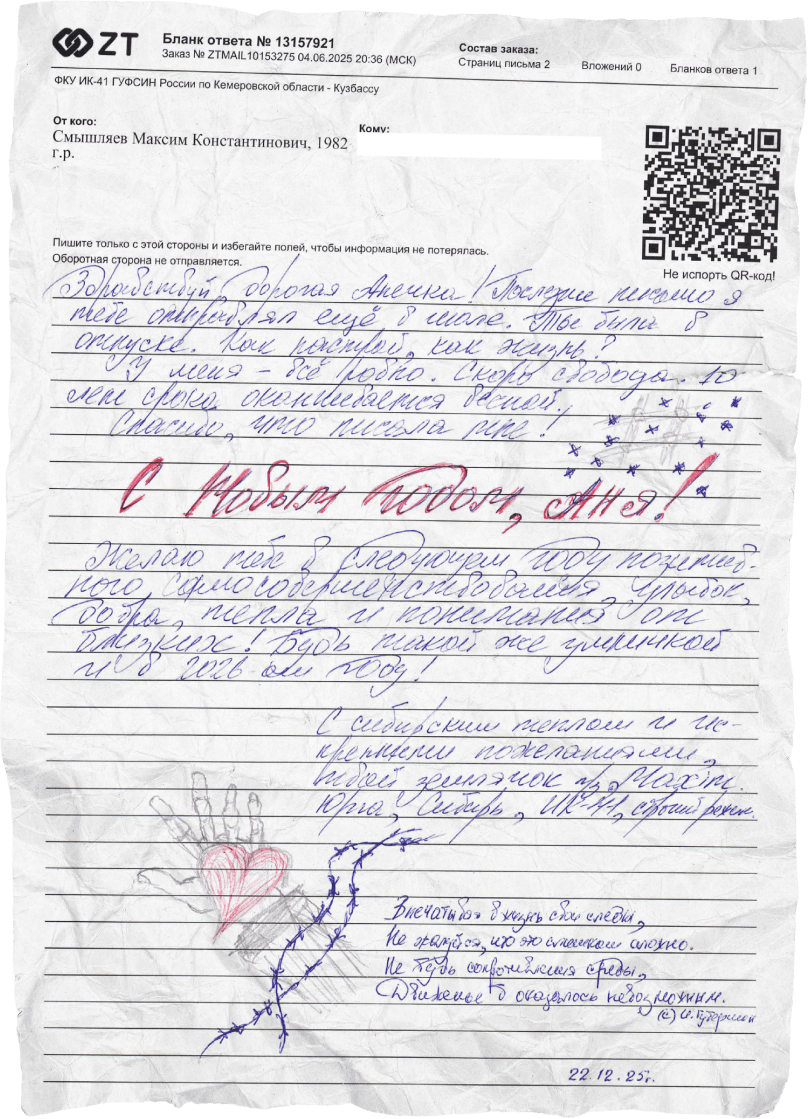 ZT
Бланк ответа № 13157921
Заказ № ZTMAIL10153275 04.06.2025 20:36 (МСК)
Состав заказа:
Страниц письма 2 Вложений 0 Бланков ответа 1
ФКУ ИК-41 ГУФСИН России по Кемеровской области - Кузбассу
От кого:
Смышляев Максим Константинович, 1982
г.р.
Кому:
Пишите только с этой стороны и избегайте полей, чтобы информация не потерялась.
Оборотная сторона не отправляется.
Не испорть QR-код!
Здравствуй, дорогая Анечка! Последнее письмо я
тебе отправлял ещё в июле. Ты была в
отпуске. Как настрой, как жизнь?
У меня – всё ровно. Скоро свобода. 10
лет срока оканчивается весной.
Спасибо, что писала мне!
С Новым Годом, Аня!
Желаю тебе в следующем году позитив-
ного самосовершенствования, улыбок,
добра, тепла и понимания от
близких! Будь такой же умничкой
и в 2026-ом году!
С сибирским теплом и ис-
кренними пожеланиями,
твой землячок Maxim.
Юрга, Сибирь, ИК-41, строгий режим.
Впечатывая в жизнь свои следы,
Не жалуйся, что это слишком сложно.
Не будь сопротивления среды,
Движенье б оказалось невозможным.
(с) И. Губерман
22.12.25г.